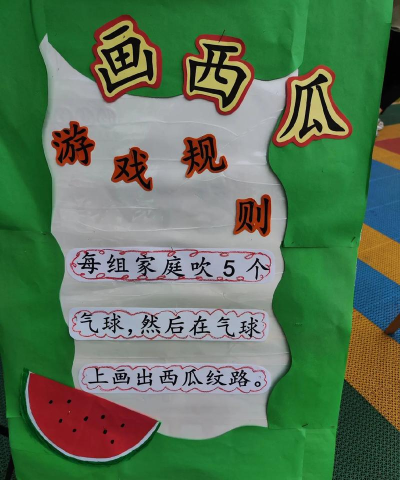 画西瓜
游戏规则
每组家庭吹5个
气球,然后在气球
上画出西瓜纹路。